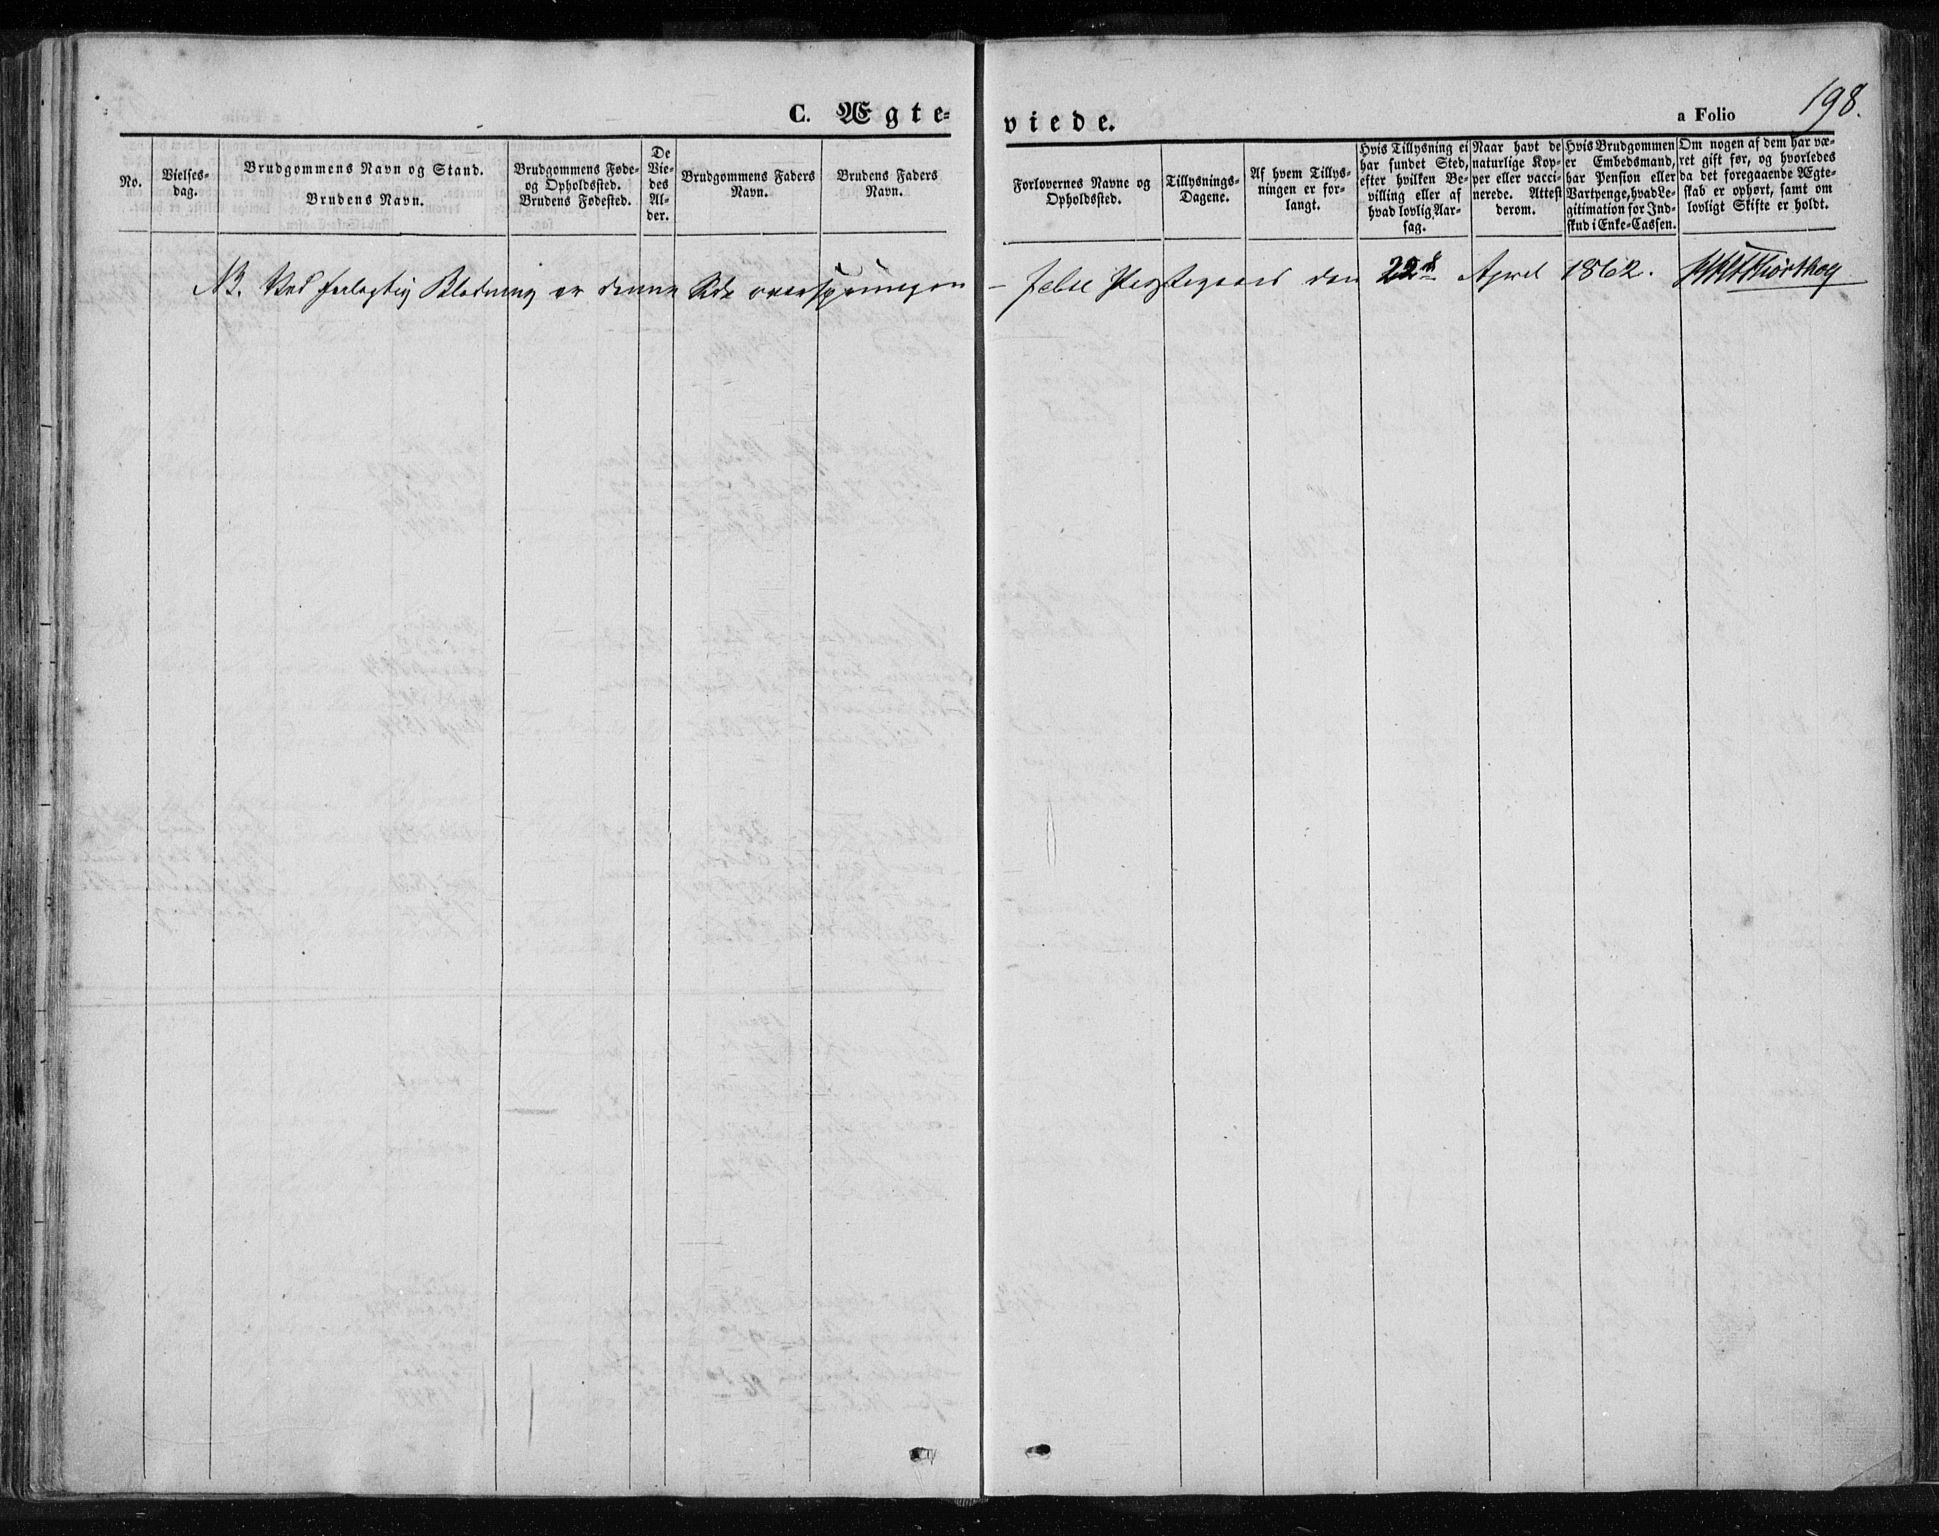 C. Ægte-
viede.
a Folio 198.
No.
Vielses-
dag.
Brudgommens Navn og Stand.
Brudens Navn.
Brudgommens Føde-
og Opholdssted.
Brudens Fødested.
De
Vie-
des
Al-
der.
Brudgommens Faders
Navn.
Brudens Faders
Navn.
Forlovernes Navne og
Opholdssted.
Tillysnings-
Dagene.
Af hvem Tillys-
ningen er for-
langt.
Hvis Tillysning ei
har fundet Sted,
efter hvilken Be-
villing eller af
hvad lovlig Aar-
sag.
Naar havt de
naturlige Kop-
per eller vacci-
nerede. Attest
derom.
Hvis Brudgommen
er Embedsmand,
har Pension eller
Vartpenge, hvad Le-
gitimation for Ind-
skud i Enke-Cassen.
Om nogen af dem har væ-
ret gift før, og hvorledes
da det foregaaende Ægte-
skab er ophørt, samt om
lovligt Skifte er holdt.
NB. Ved feilagtig Bladning er denne Side oversprungen – Præstegaard den 22de April 1862.